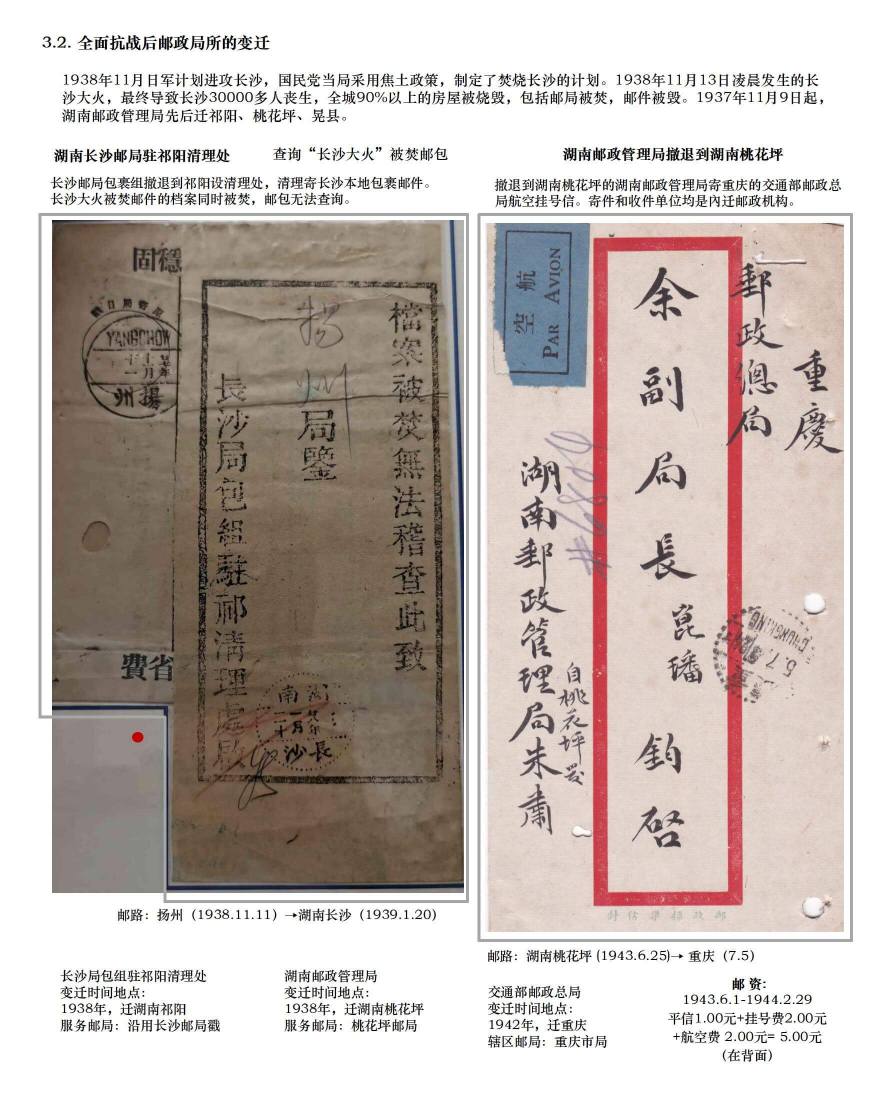 3.2. 全面抗战后邮政局所的变迁
1938年11月日军计划进攻长沙，国民党当局采用焦土政策，制定了焚烧长沙的计划。1938年11月13日凌晨发生的长
沙大火，最终导致长沙30000多人丧生，全城90%以上的房屋被烧毁，包括邮局被焚，邮件被毁。1937年11月9日起，
湖南邮政管理局先后迁祁阳、桃花坪、晃县。
湖南长沙邮局驻祁阳清理处 查询“长沙大火”被焚邮包
长沙邮局包裹组撤退到祁阳设清理处，清理寄长沙本地包裹邮件。
长沙大火被焚邮件的档案同时被焚，邮包无法查询。
固穩
YANGCHOW
州揚
費省
檔案被焚無法稽查此致
揚州局鑒
長沙局包組駐祁清理處啟
南
沙長
邮路：扬州（1938.11.11）→湖南长沙（1939.1.20）
长沙局包组驻祁阳清理处
变迁时间地点：
1938年，迁湖南祁阳
服务邮局：沿用长沙邮局戳
湖南邮政管理局
变迁时间地点：
1938年，迁湖南桃花坪
服务邮局：桃花坪邮局
湖南邮政管理局撤退到湖南桃花坪
撤退到湖南桃花坪的湖南邮政管理局寄重庆的交通部邮政总
局航空挂号信。寄件和收件单位均是内迁邮政机构。
航空
PAR AVION
重慶
郵政總局
余副局長崑璠鈞啓
湖南郵政管理局朱肅
自桃花坪發
CHUNGKING
邮路：湖南桃花坪 (1943.6.25)→ 重庆（7.5）
交通部邮政总局
变迁时间地点：
1942年，迁重庆
辖区邮局：重庆市局
邮 资：
1943.6.1-1944.2.29
平信1.00元+挂号费2.00元
+航空费 2.00元= 5.00元
（在背面）